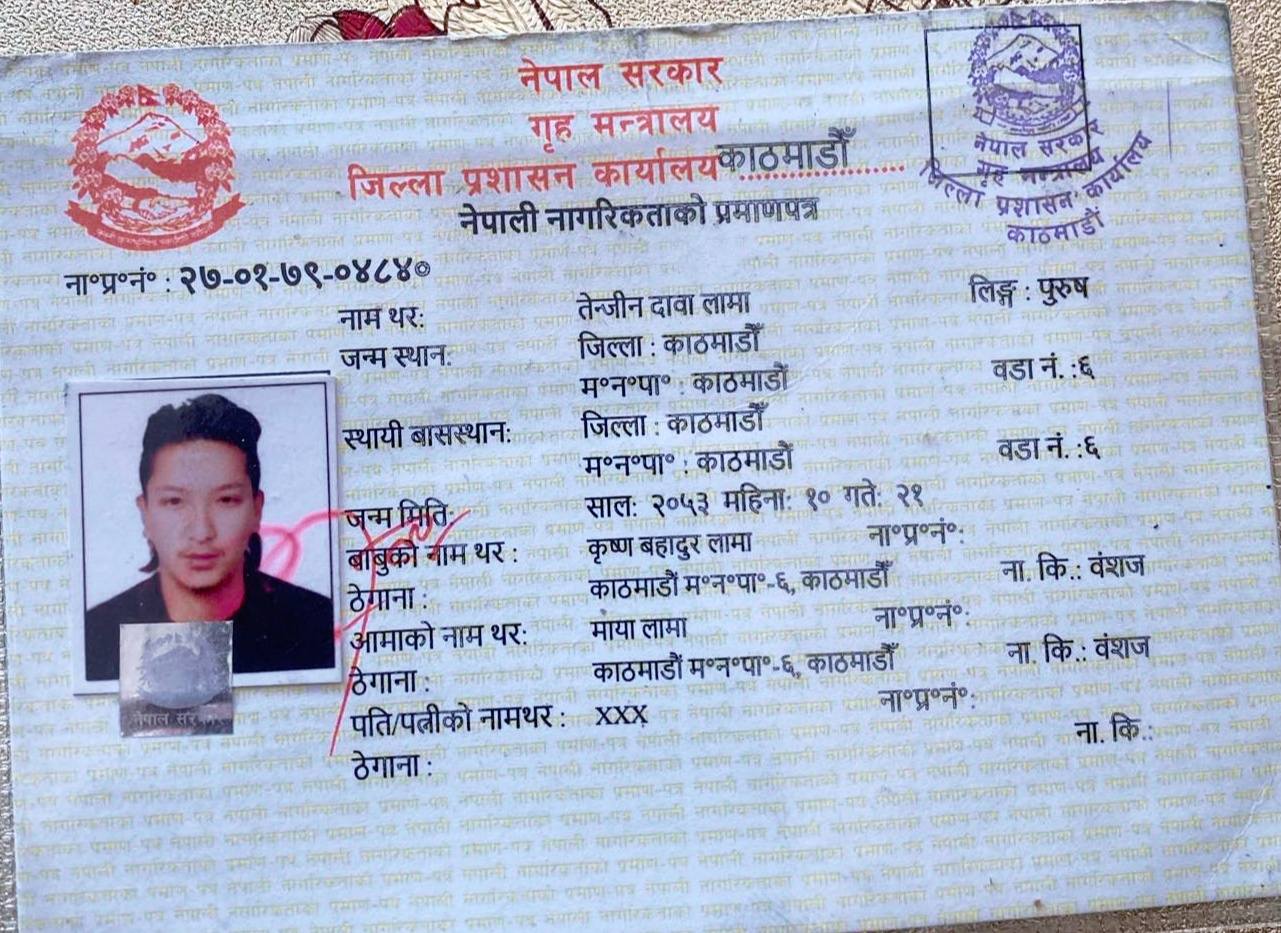 नेपाल सरकार
गृह मन्त्रालय
जिल्ला प्रशासन कार्यालय काठमाडौँ
नेपाली नागरिकताको प्रमाणपत्र
नेपाल सरकार
गृह मन्त्रालय
जिल्ला प्रशासन कार्यालय
काठमाडौं
ना॰प्र॰नं॰ : २७-०१-७९-०४८४०
नाम थर: तेन्जीन दावा लामा लिङ्ग : पुरुष
जन्म स्थान: जिल्ला : काठमाडौँ
म॰न॰पा॰ : काठमाडौं वडा नं. :६
स्थायी बासस्थान: जिल्ला : काठमाडौँ
म॰न॰पा॰ : काठमाडौं वडा नं. :६
जन्म मिति: साल: २०५३ महिना: १० गते: २१
बाबुको नाम थर : कृष्ण बहादुर लामा ना॰प्र॰नं॰:
ठेगाना : काठमाडौं म॰न॰पा॰-६, काठमाडौँ ना. कि.: वंशज
आमाको नाम थर: माया लामा ना॰प्र॰नं॰:
ठेगाना : काठमाडौं म॰न॰पा॰-६, काठमाडौँ ना. कि.: वंशज
पति/पत्नीको नामथर : XXX ना॰प्र॰नं॰:
ठेगाना : ना. कि.:
नेपाल सरकार